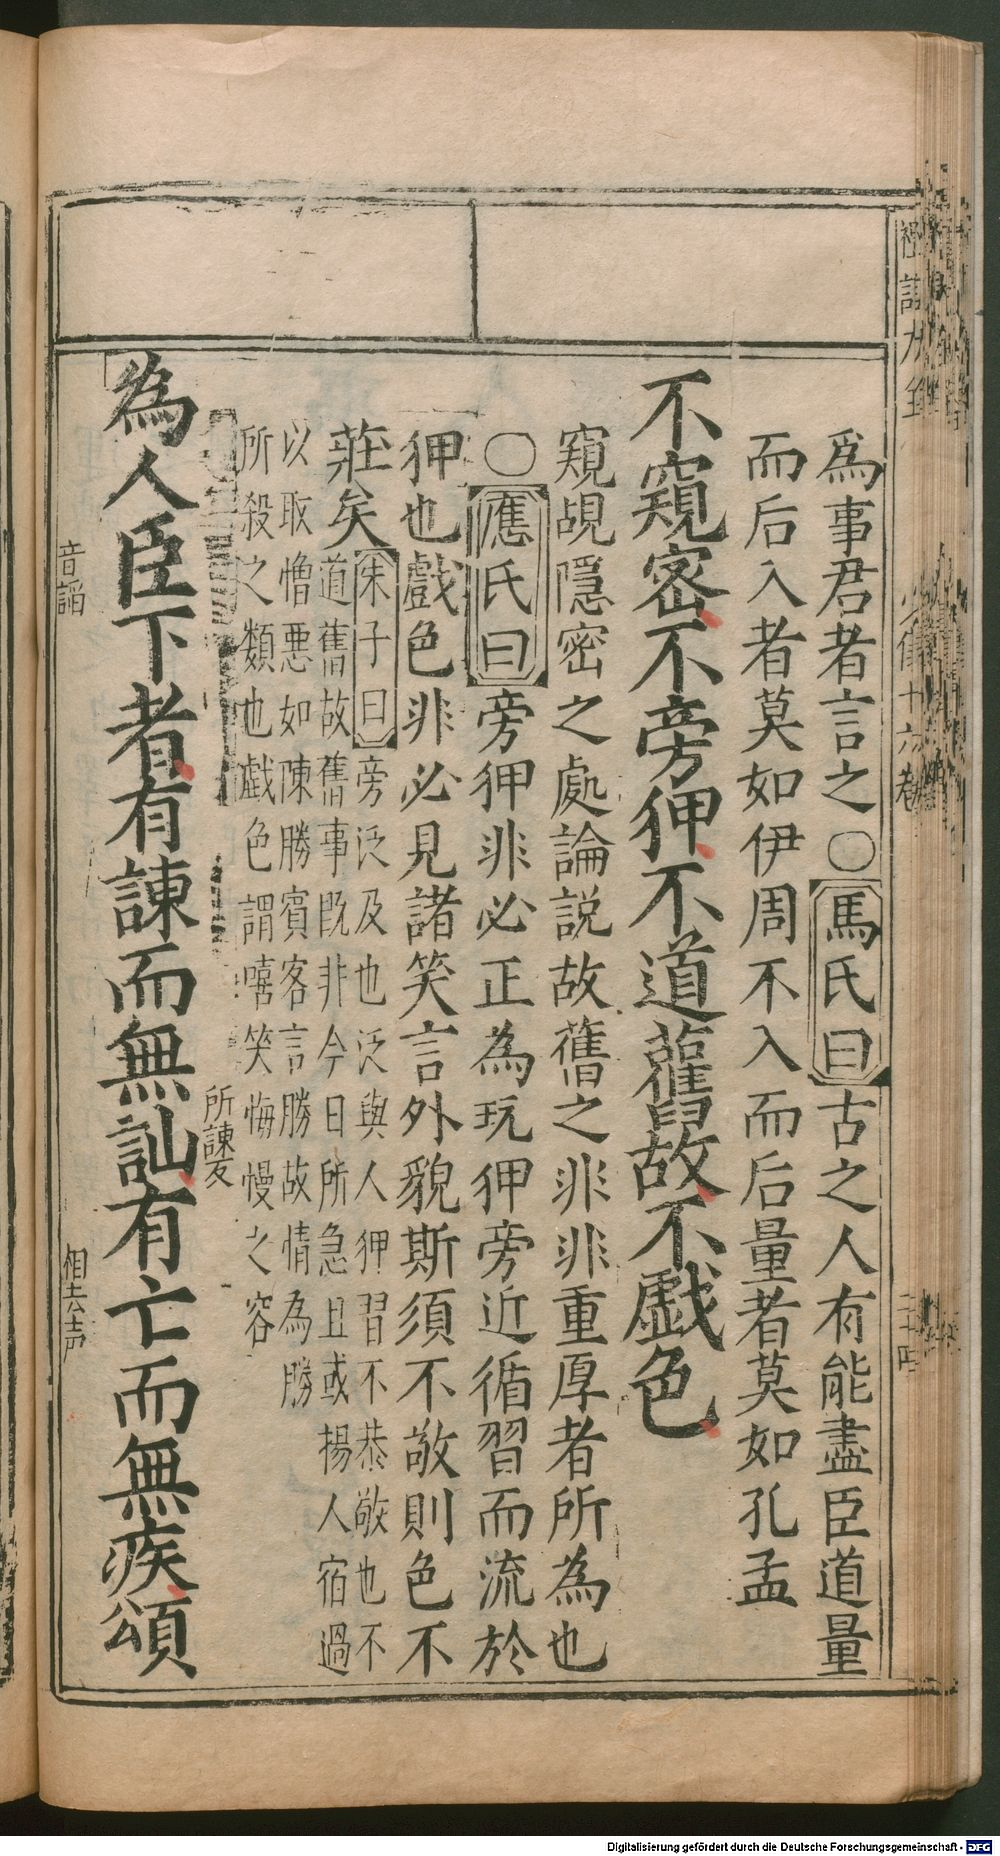 爲事君者言之○馬氏曰古之人有能盡臣道量
而后入者莫如伊周不入而后量者莫如孔孟
不窺密不旁狎不道舊故不戲色
窺覘隱密之處論說故舊之非非重厚者所為也
○應氏曰旁狎非必正為玩狎旁近循習而流於
狎也戲色非必見諸笑言外貌斯須不敬則色不
莊矣
朱子曰旁泛及也泛與人狎習不恭敬也不
道舊故舊事既非今日所急且或揚人宿過
以取憎惡如陳勝賓客言勝故情為勝
所殺之類也戲色謂嘻笑侮慢之容
為人臣下者有諫而無訕有亡而無疾頌
所諫反
音謟
相去声
十六卷